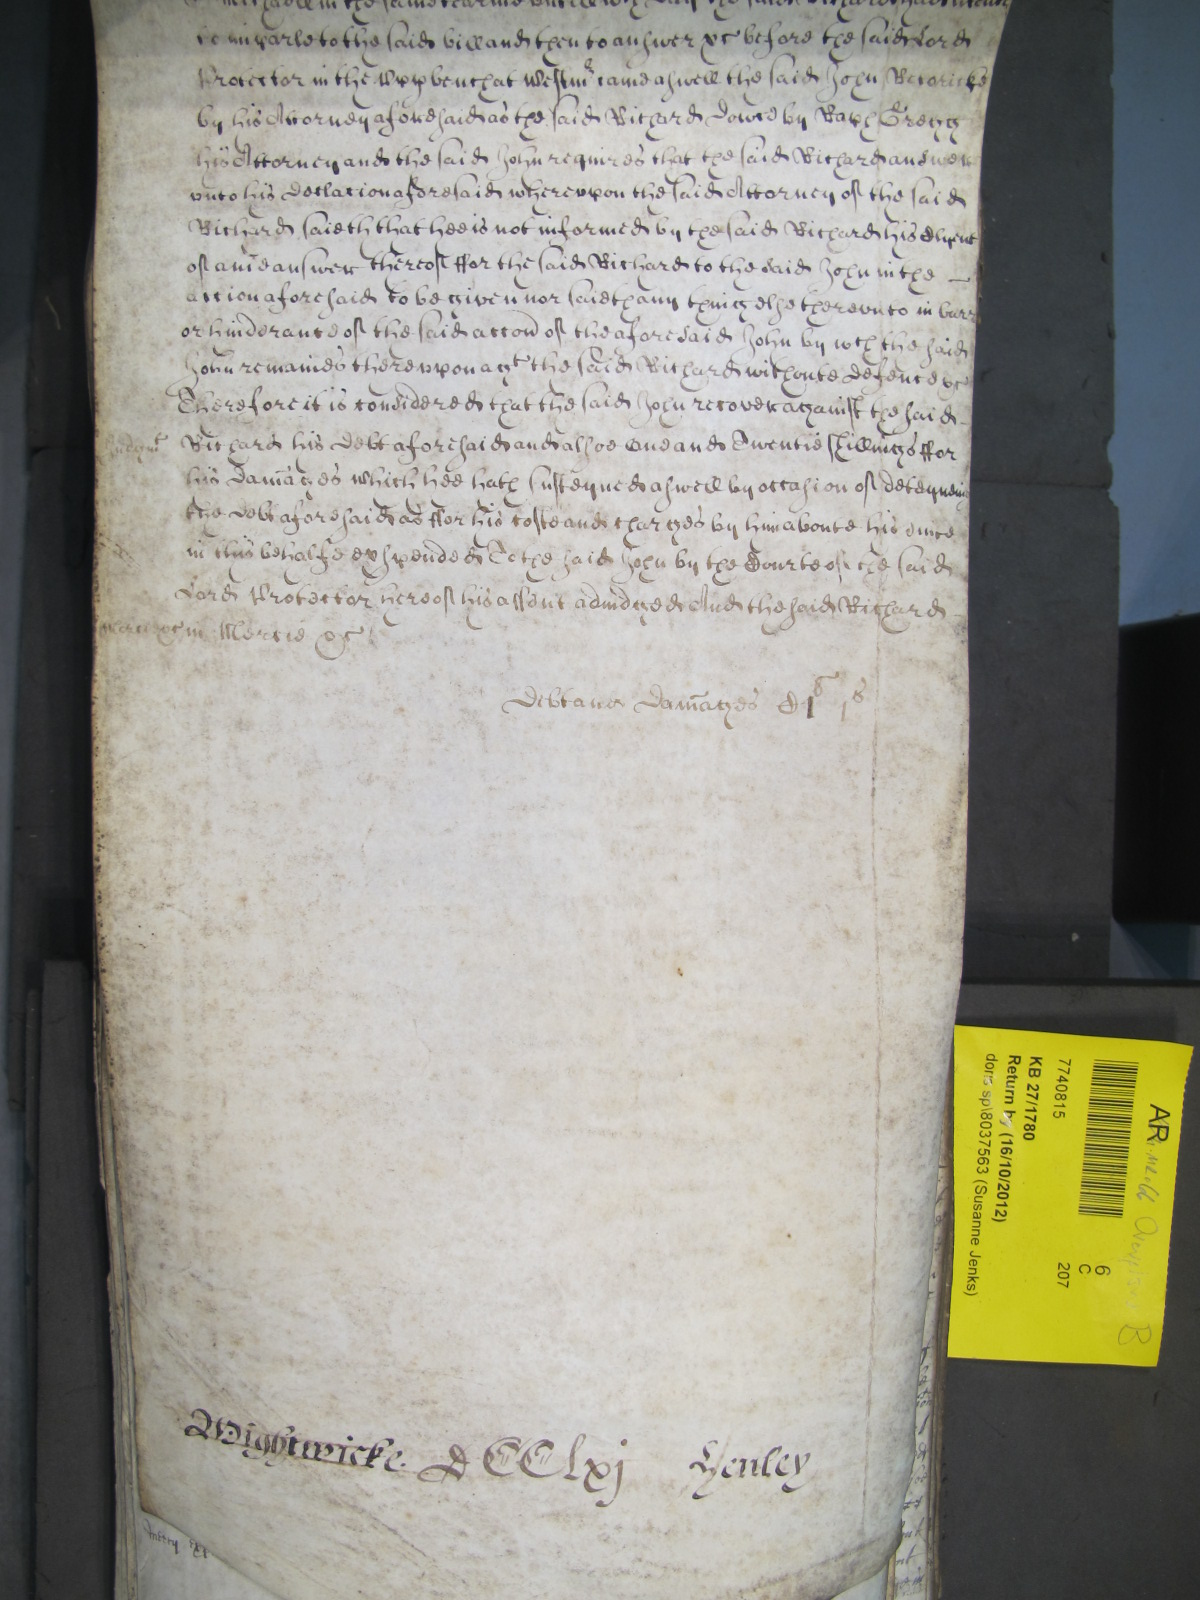 Michaell in the same tearme untill wch day the said Richard had licence
to imparle to the said bill and then to answer &c before the said Lord
Protector in the Upp bench at Westmr came aswell the said John
by his Attorney aforesaid as the said Richard Dowce by Raph Gregg
his Attorney and the said John requires that the said Richard answer
unto his declaration aforesaid whereuppon the said Attorney of the said
Richard saieth that hee is not informed by the said Richard his Clyent
of anie answer thereof ffor the said Richard to the said John in the
accion aforesaid to be given nor saieth any thinge else thereunto in barr
or hinderance of the said accon of the aforesaid John by wch the said
John remaines thereuppon agt the said Richard withoute defence &c
Therefore it is considered that the said John recover against the said
Richard his debt aforesaid and alsoe One and Twentie shillings ffor
his damages which hee hath susteyned aswell by occasion of deteyneing
the debt aforesaid as ffor his coste and charges by him aboute his suite
in this behalfe expended To the said John by the Courte of the said
Lord Protector hereof his assent adiudged And the said Richard
in Mercie &c
Debt and Damages
Wightwicke. DCClxj Henley
AR
7740815
KB 27/1780
Return by (16/10/2012)
doris sp\8037563 (Susanne Jenks)
6
C
207